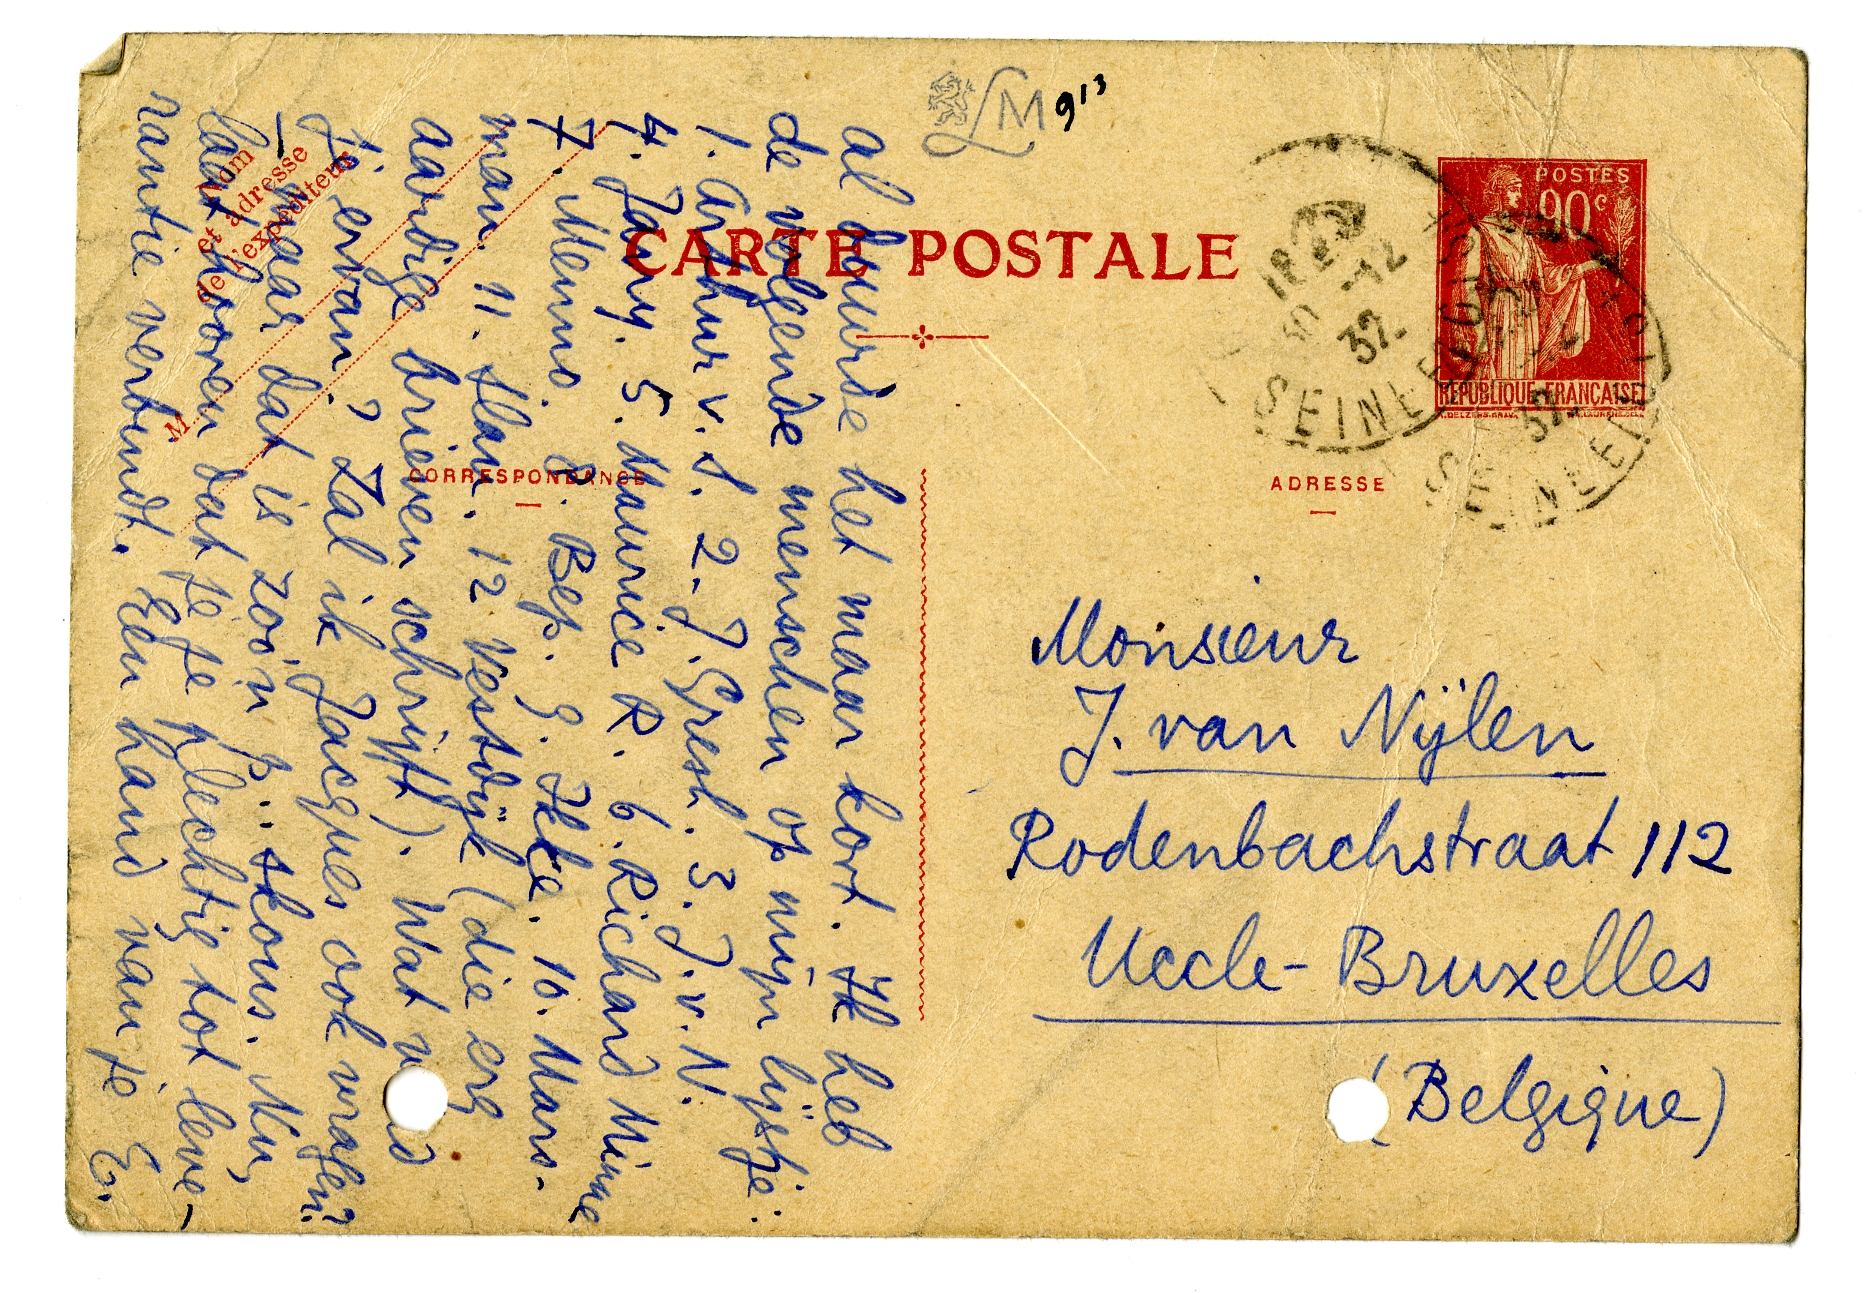 LM 9¹³
CARTE POSTALE
POSTES
90c
REPUBLIQUE FRANÇAISE
18
30 -12
32.
SEINE
32
SEINE
Nom
et adresse
de l'expéditeur
M
CORRESPONDANCE
ADRESSE
al duurde het maar kort. Ik heb
de volgende menschen op mijn lijstje:
1. Arthur v. S. 2. J. Gresh. 3. J. v. N.
4. Jany. 5. Maurice R. 6. Richard Minne
7. Menno. 8. Bep. 9. Ikke. 10. Mars-
man. 11. Slau. 12 Vestdijk (die erg
aardige brieven schrijft). Wat vind
je ervan? Zal ik Jacques ook vragen?
— maar dat is zoo'n p.. skous. Nu,
laat hooren dat je je plechtig tot leve-
rantie verbindt. Een hand van je E.
Monsieur
J. van Nijlen
Rodenbachstraat 112
Uccle-Bruxelles
(Belgique)